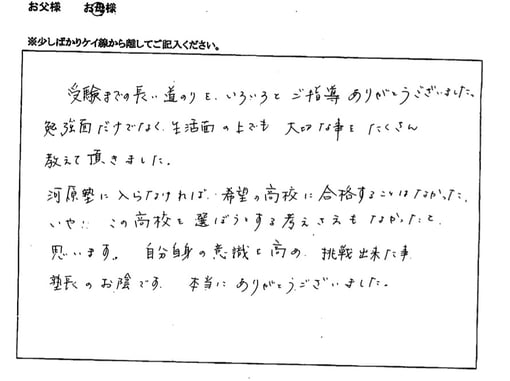 お父様 お母様
※少しばかりケイ線から離してご記入ください。
受験までの長い道のりを、いろいろとご指導ありがとうございました。
勉強面だけでなく、生活面の上でも 大切な事をたくさん
教えて頂きました。
河原塾に入らなければ、希望の高校に合格することはなかった、
いや… この高校を選ぼうとする考えさえもなかったと
思います。 自分自身の意識を高め、挑戦出来た事
塾長のお陰です 本当にありがとうございました。